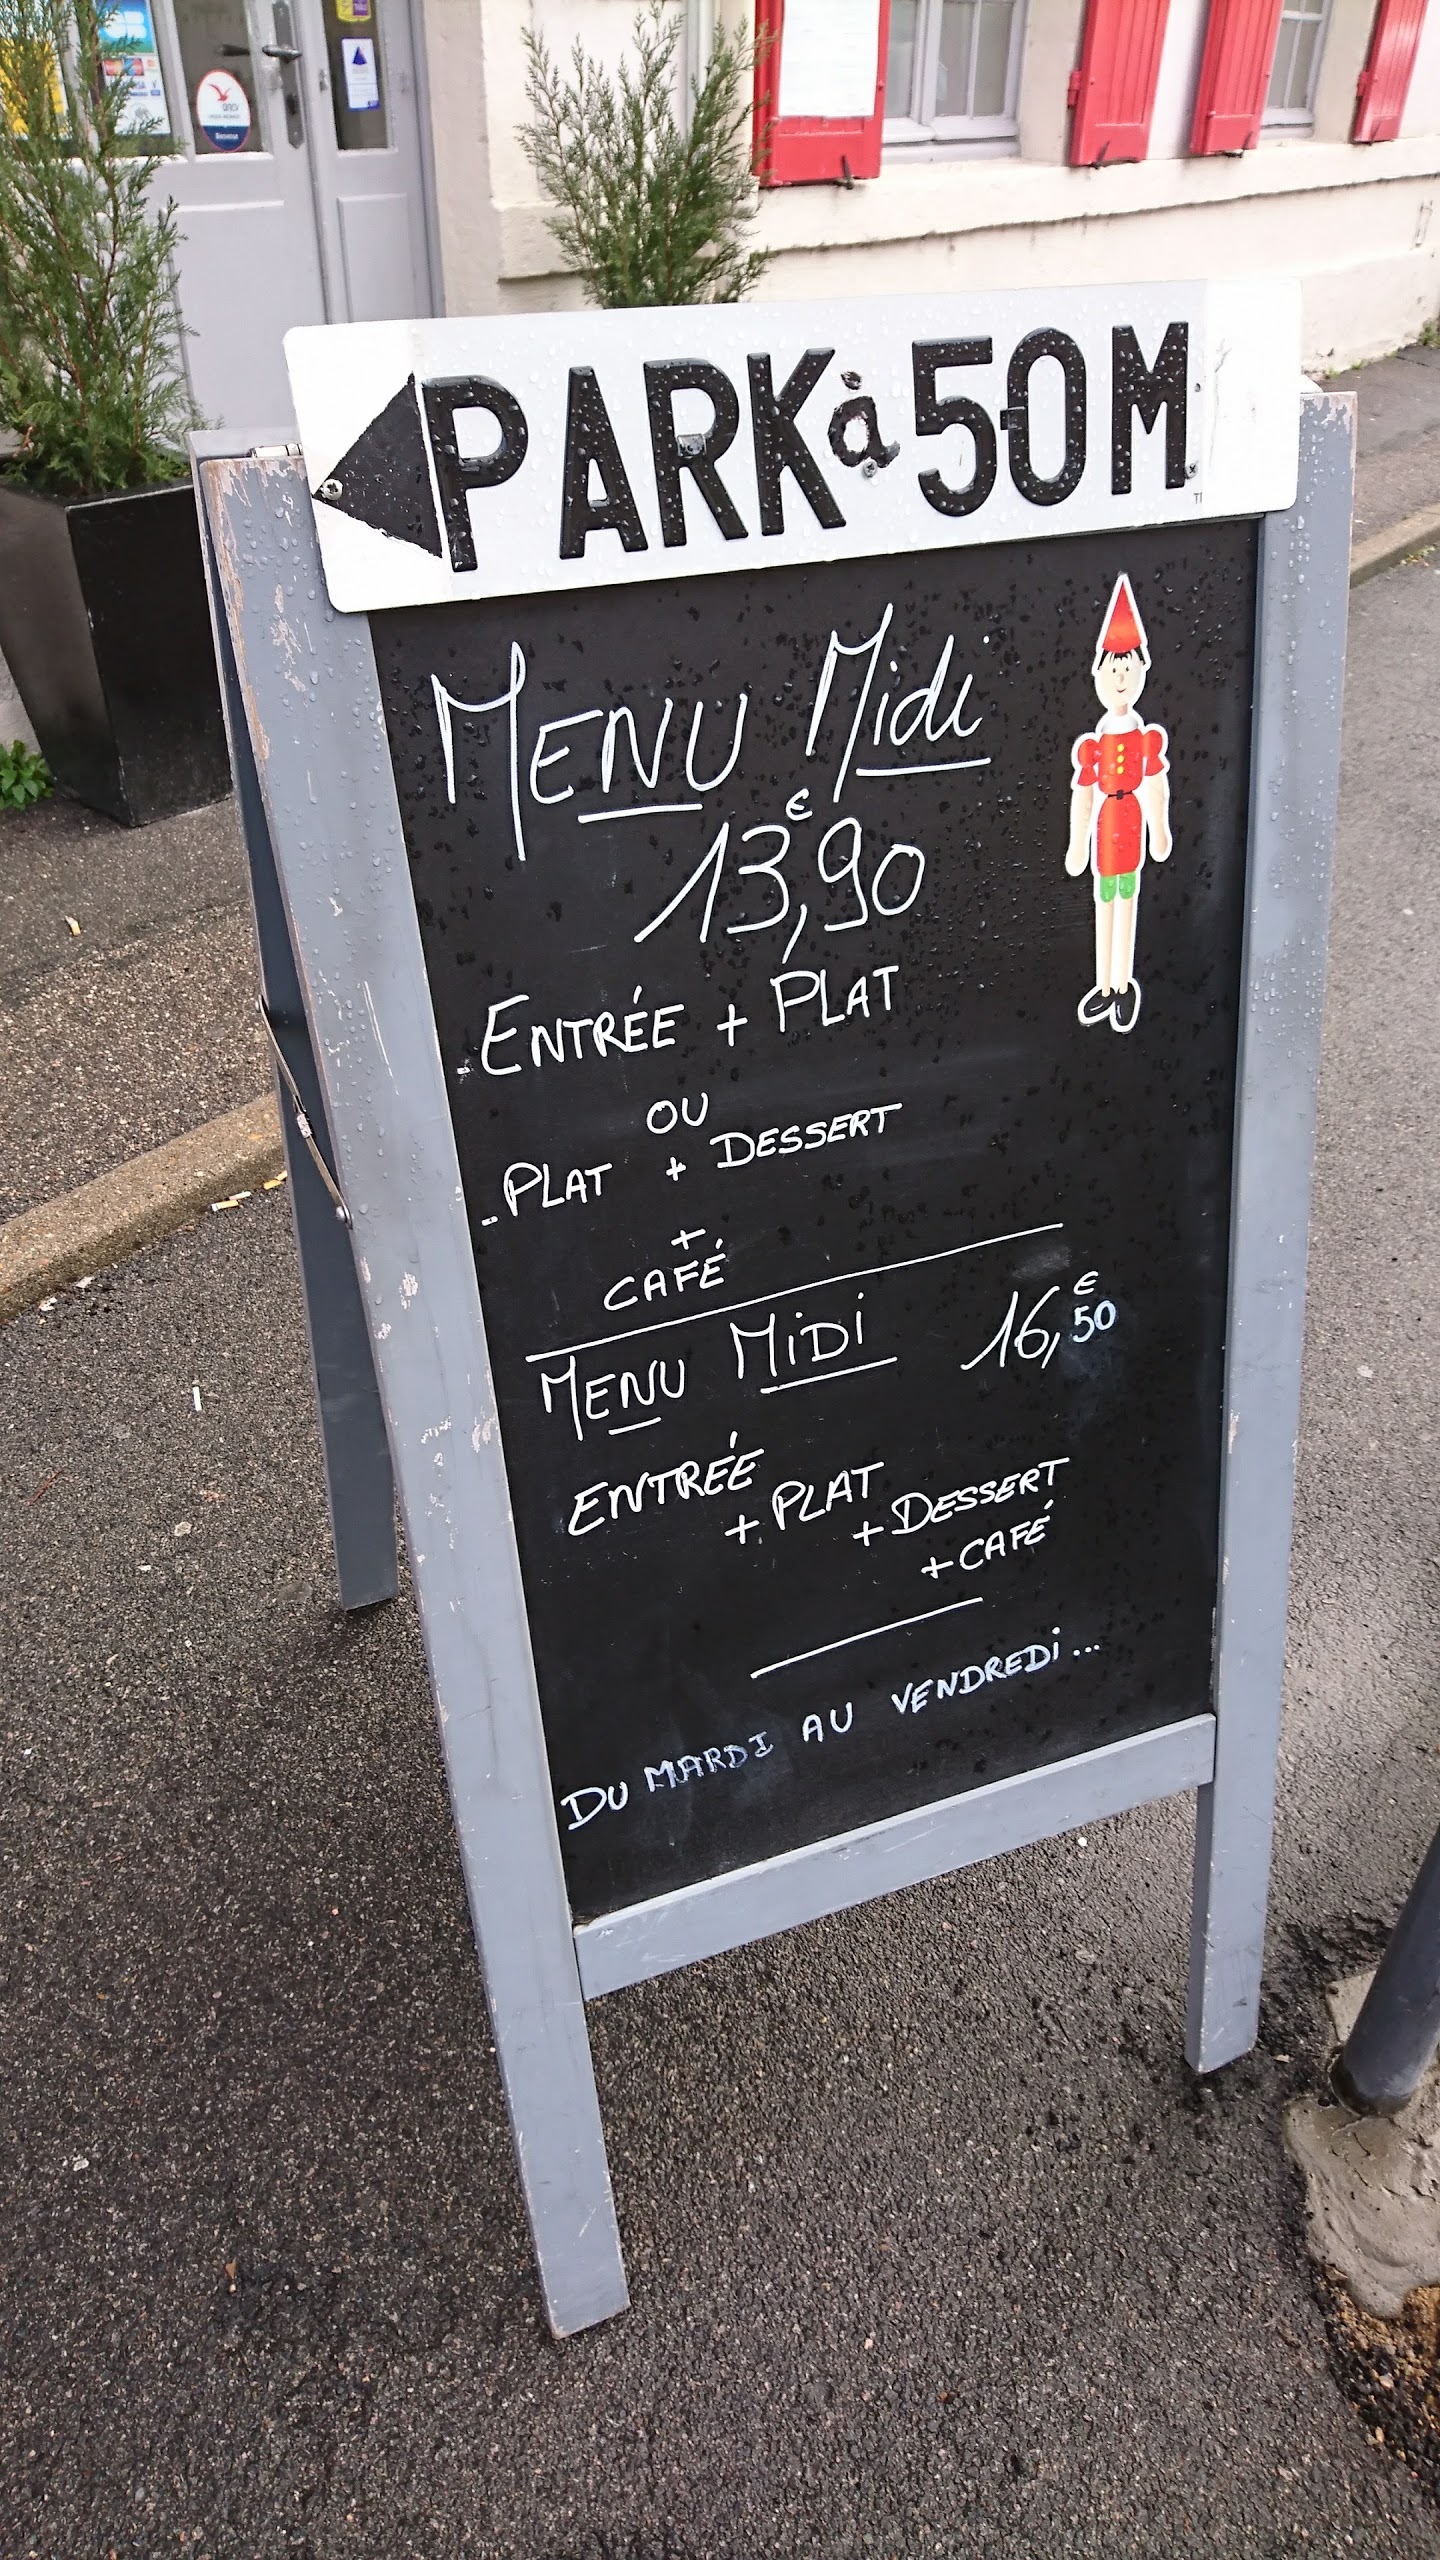 PARK à 50M
MENU Midi
13,90 €
- ENTRÉE + PLAT
OU
- PLAT + DESSERT
+
CAFÉ
MENU MiDi 16,50 €
ENTRÉE
+ PLAT
+ DESSERT
+ CAFÉ
DU MARDI AU VENDREDi...
ancv
VISA